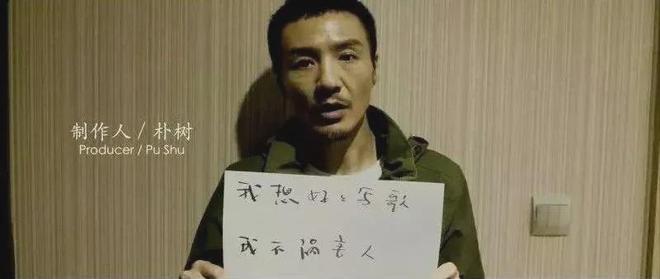 制作人 / 朴树
Producer / Pu Shu
我想好好写歌
我不祸害人